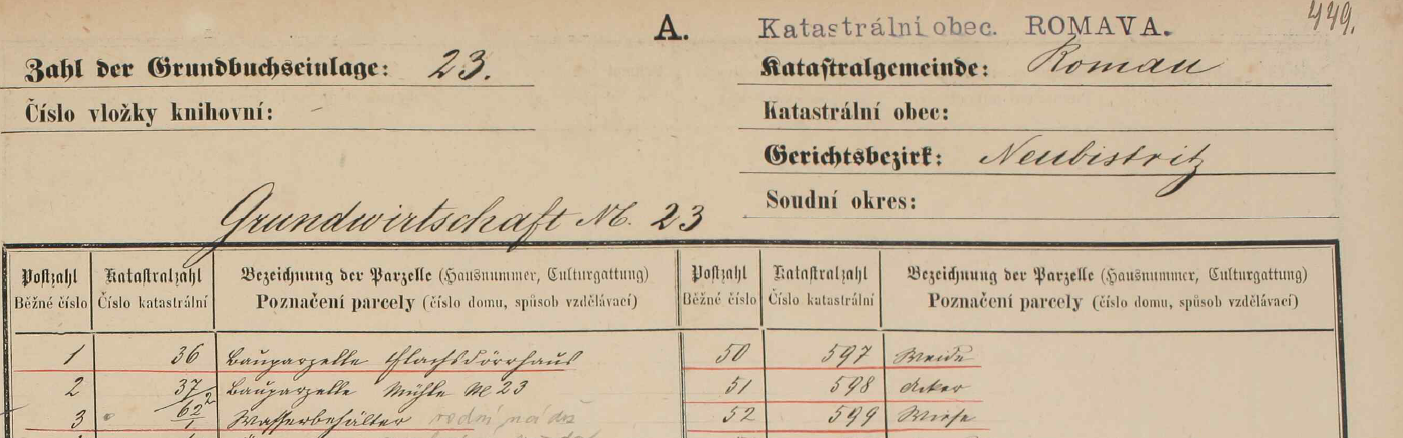 449.
A. Katastrální obec. ROMAVA.
Zahl der Grundbuchseinlage: 23.
Katastralgemeinde: Romau
Číslo vložky knihovní:
Katastrální obec:
Gerichtsbezirk: Neubistritz
Soudní okres:
Grundwirtschaft №. 23
Postzahl Katastralzahl Bezeichnung der Parzelle (Hausnummer, Culturgattung) Postzahl Katastralzahl Bezeichnung der Parzelle (Hausnummer, Culturgattung)
Běžné číslo Číslo katastrální Poznačení parcely (číslo domu, spůsob vzdělávací) Běžné číslo Číslo katastrální Poznačení parcely (číslo domu, spůsob vzdělávací)
1 36 Bauparzelle Flachsdörrhaus 50 597 Weide
2 37/2 Bauparzelle Mühle № 23 51 598 Acker
3 62/1 Wasserbehälter 52 599 Wiese